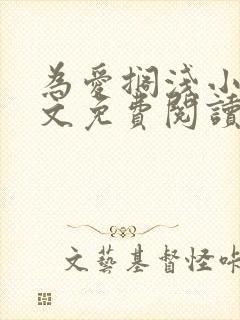 為愛擱淺小
文免費閱讀
文藝基督怪咔